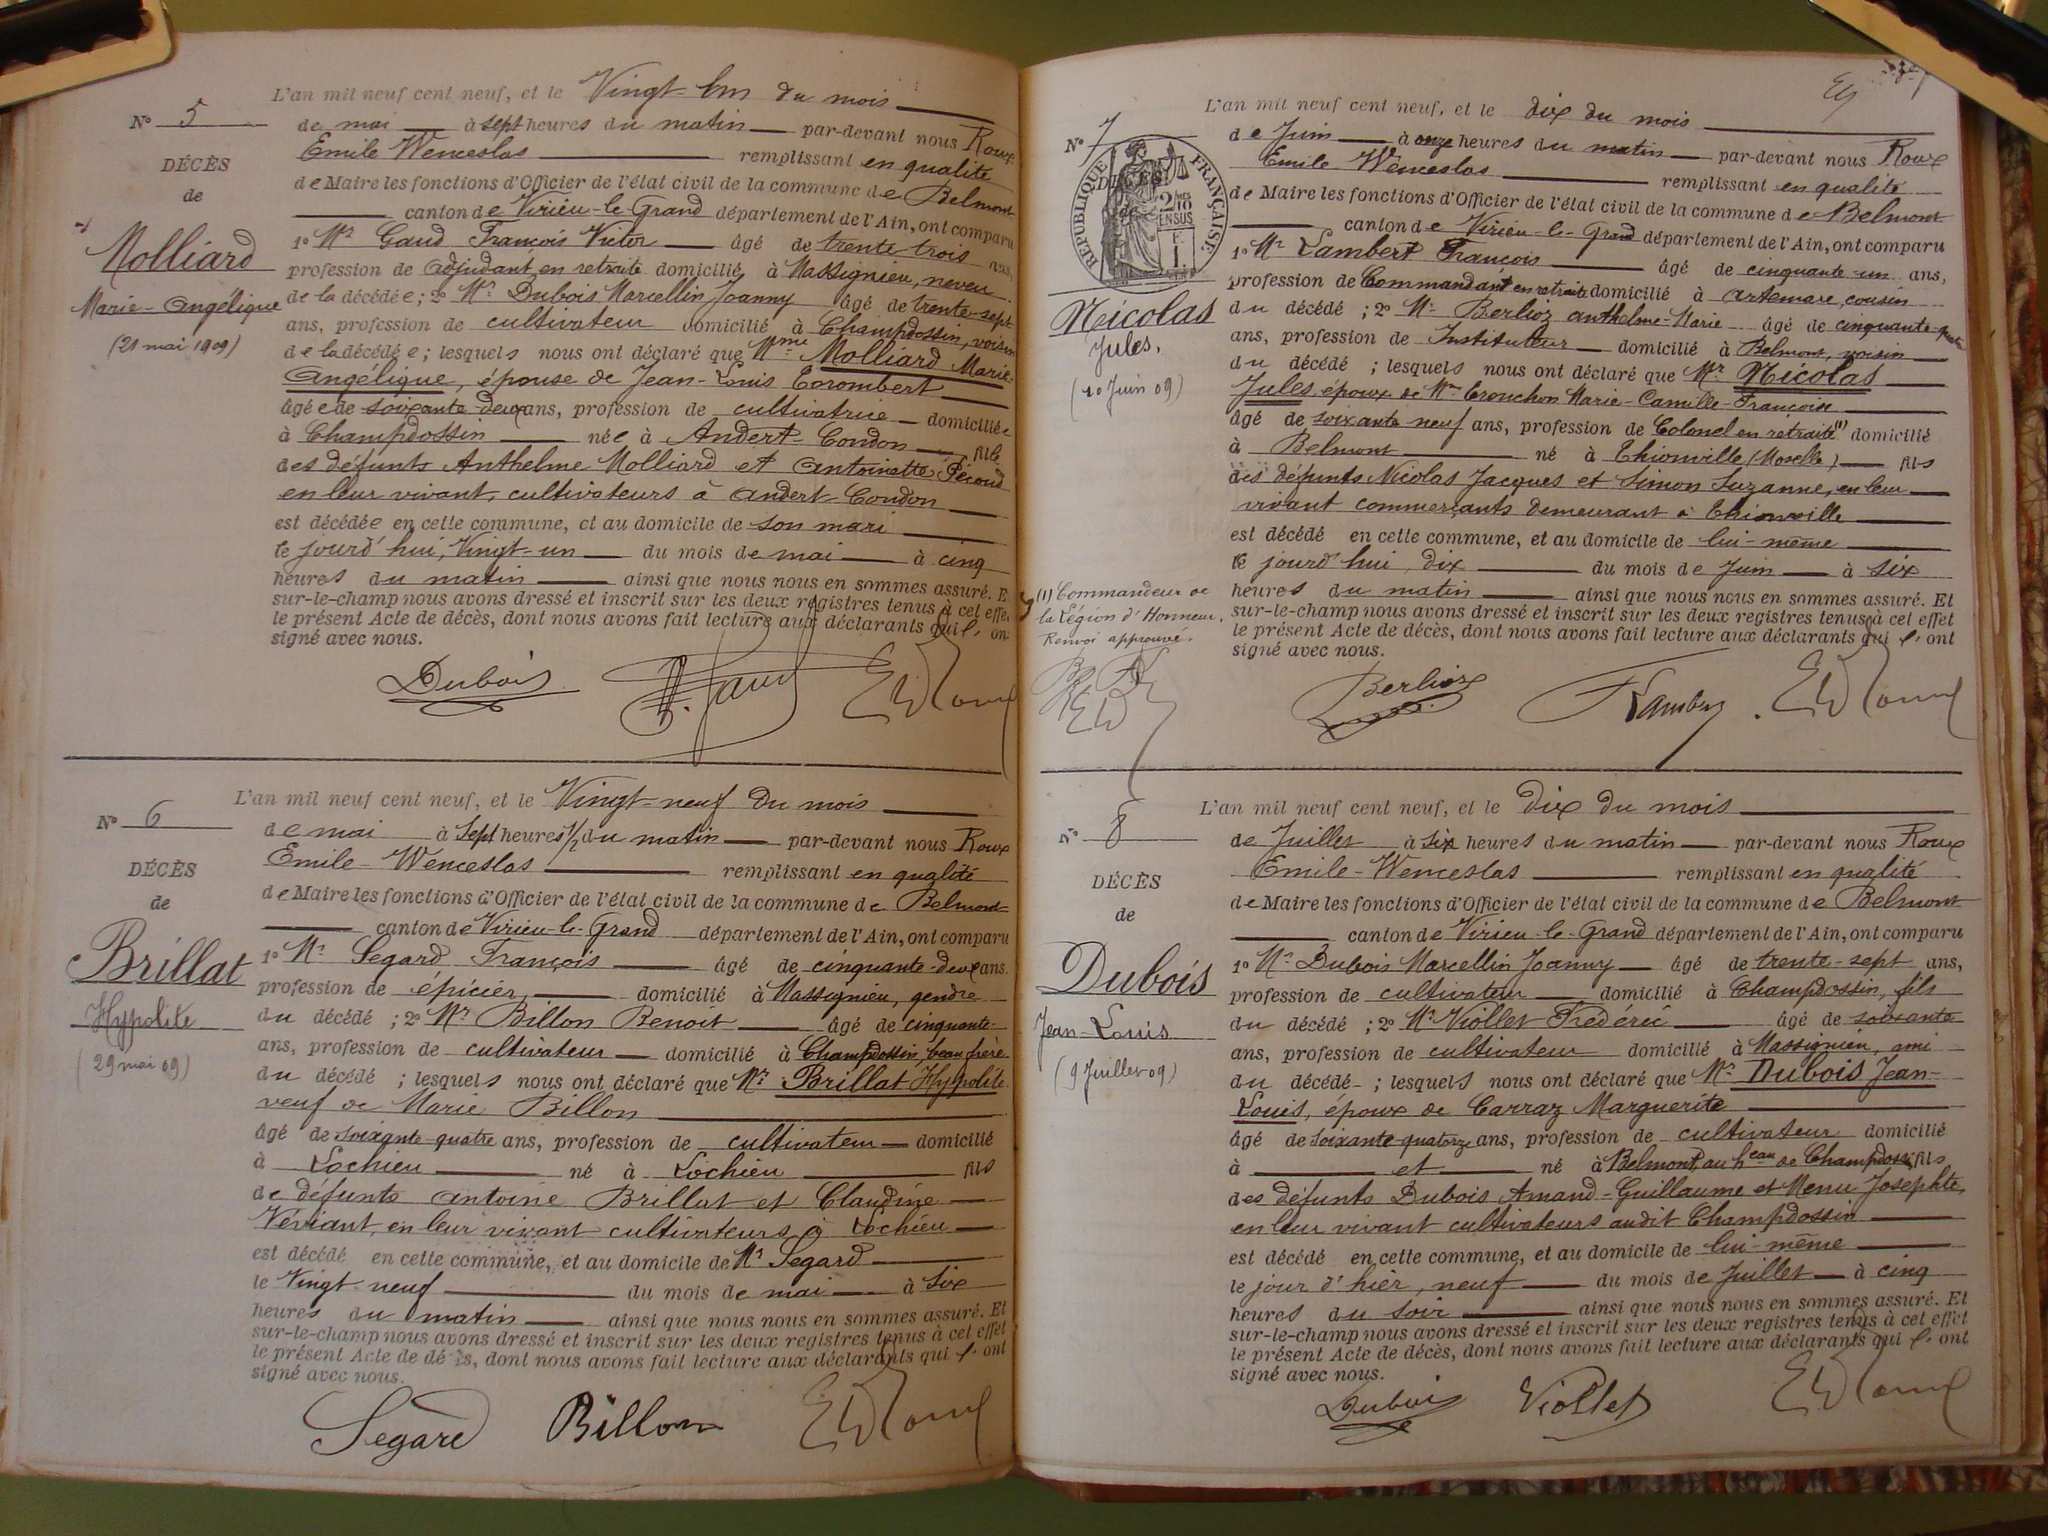 L'an mil neuf cent neuf, et le Vingt-Un du mois
N° 5
de mai à sept heures du matin par-devant nous Roux
Emile Wenceslas remplissant en qualité
DÉCÈS
de Maire les fonctions d'Officier de l'état civil de la commune de Belmont
de
canton de Virieu-le-Grand département de l'Ain, ont comparu
Molliard
1° Mr Gaud François Victor âgé de trente trois ans,
profession de adjudant en retraite domicilié à Massignieu, neveu
Marie-Angélique
de la décédée; 2° Mr Dubois Marcellin Joanny âgé de trente-sept
(21 mai 1909)
ans, profession de cultivateur domicilié à Champdossin, voisin
de la décédée; lesquels nous ont déclaré que Mme Molliard Marie-
Angélique, épouse de Jean-Louis Corombert
âgée de soixante deux ans, profession de cultivatrice domiciliée
à Champdossin née à Andert-Condon fille
des défunts Anthelme Molliard et Antoinette Péroud
en leur vivant, cultivateurs à Andert-Condon
est décédée en cette commune, et au domicile de son mari
le jourd'hui, Vingt-un du mois de mai à cinq
heures du matin ainsi que nous nous en sommes assuré. E
sur-le-champ nous avons dressé et inscrit sur les deux registres tenus à cet effe
le présent Acte de décès, dont nous avons fait lecture aux déclarants qui l' on
signé avec nous.
Dubois V. Gaud E W Roux
L'an mil neuf cent neuf, et le Vingt-neuf du mois
N° 6
de mai à Sept heures 1/2 du matin par-devant nous Roux
Emile-Wenceslas remplissant en qualité
DÉCÈS
de Maire les fonctions d'Officier de l'état civil de la commune de Belmont
de
canton de Virieu-le-Grand département de l'Ain, ont comparu
Brillat
1° Mr Segard François âgé de cinquante-deux ans.
profession de épicier, domicilié à Massignieu, gendre
Hypolite
du décédé; 2° Mr Billon Benoit âgé de cinquante-
(29 mai 09)
ans, profession de cultivateur domicilié à Champdossin, beau frère
du décédé; lesquels nous ont déclaré que Mr Brillat Hypolite
veuf de Marie Billon
âgé de soixante-quatre ans, profession de cultivateur domicilié
à Lochieu né à Lochieu fils
de défunts Antoine Brillat et Claudine
Vériant, en leur vivant cultivateurs à Lochieu
est décédé en cette commune, et au domicile de Mr Segard
le Vingt-neuf du mois de mai à Six
heures du matin ainsi que nous nous en sommes assuré. Et
sur-le-champ nous avons dressé et inscrit sur les deux registres tenus à cet effet
le présent Acte de décès, dont nous avons fait lecture aux déclarants qui l' ont
signé avec nous.
Segard Billon E W Roux
L'an mil neuf cent neuf, et le dix du mois
N° 7
de Juin à onze heures du matin par-devant nous Roux
Emile Wenceslas remplissant en qualité
RÉPUBLIQUE FRANÇAISE
DÉCÈS
2/10 EN SUS
de Maire les fonctions d'Officier de l'état civil de la commune de Belmont
de
canton de Virieu-le-Grand département de l'Ain, ont comparu
1° Mr Lambert François âgé de cinquante-un ans,
profession de Commandant en retraite domicilié à Artemare, cousin
Nicolas
du décédé; 2° Mr Berlioz Anthelme-Marie âgé de cinquante-quatre
Jules,
ans, profession de Instituteur domicilié à Belmont, voisin
(10 Juin 09)
du décédé; lesquels nous ont déclaré que Mr Nicolas
Jules époux de Mme Crouchon Marie-Camille-Françoise
âgé de soixante neuf ans, profession de Colonel en retraite (1) domicilié
à Belmont né à Thionville (Moselle) fils
des défunts Nicolas Jacques et Simon Suzanne, en leur
vivant commerçants demeurant à Thionville
est décédé en cette commune, et au domicile de lui-même
le jourd'hui, dix du mois de Juin à six
heures du matin ainsi que nous nous en sommes assuré. Et
(1) Commandeur de
la Légion d'Honneur.
Renvoi approuvé.
sur-le-champ nous avons dressé et inscrit sur les deux registres tenus à cet effet
le présent Acte de décès, dont nous avons fait lecture aux déclarants qui l' ont
signé avec nous.
Berlioz F Lambert E W Roux
L'an mil neuf cent neuf, et le dix du mois
N° 8
de Juillet à six heures du matin par-devant nous Roux
Emile-Wenceslas remplissant en qualité
DÉCÈS
de Maire les fonctions d'Officier de l'état civil de la commune de Belmont
de
canton de Virieu-le-Grand département de l'Ain, ont comparu
Dubois
1° Mr Dubois Marcellin Joanny âgé de trente-sept ans,
profession de cultivateur domicilié à Champdossin, fils
Jean-Louis
du décédé; 2° Mr Viollet Frédéric âgé de soixante
ans, profession de cultivateur domicilié à Massignieu, ami
(9 Juillet 09)
du décédé; lesquels nous ont déclaré que Mr Dubois Jean-
Louis, époux de Carraz Marguerite
âgé de soixante-quatorze ans, profession de cultivateur domicilié
à et né à Belmont, au heau de Champdossin, fils
des défunts Dubois Amand-Guillaume et Menu Josephte,
en leur vivant cultivateurs audit Champdossin
est décédé en cette commune, et au domicile de lui-même
le jour d'hier, neuf du mois de Juillet à cinq
heures du soir ainsi que nous nous en sommes assuré. Et
sur-le-champ nous avons dressé et inscrit sur les deux registres tenus à cet effet
le présent Acte de décès, dont nous avons fait lecture aux déclarants qui l' ont
signé avec nous.
Dubois Viollet E W Roux